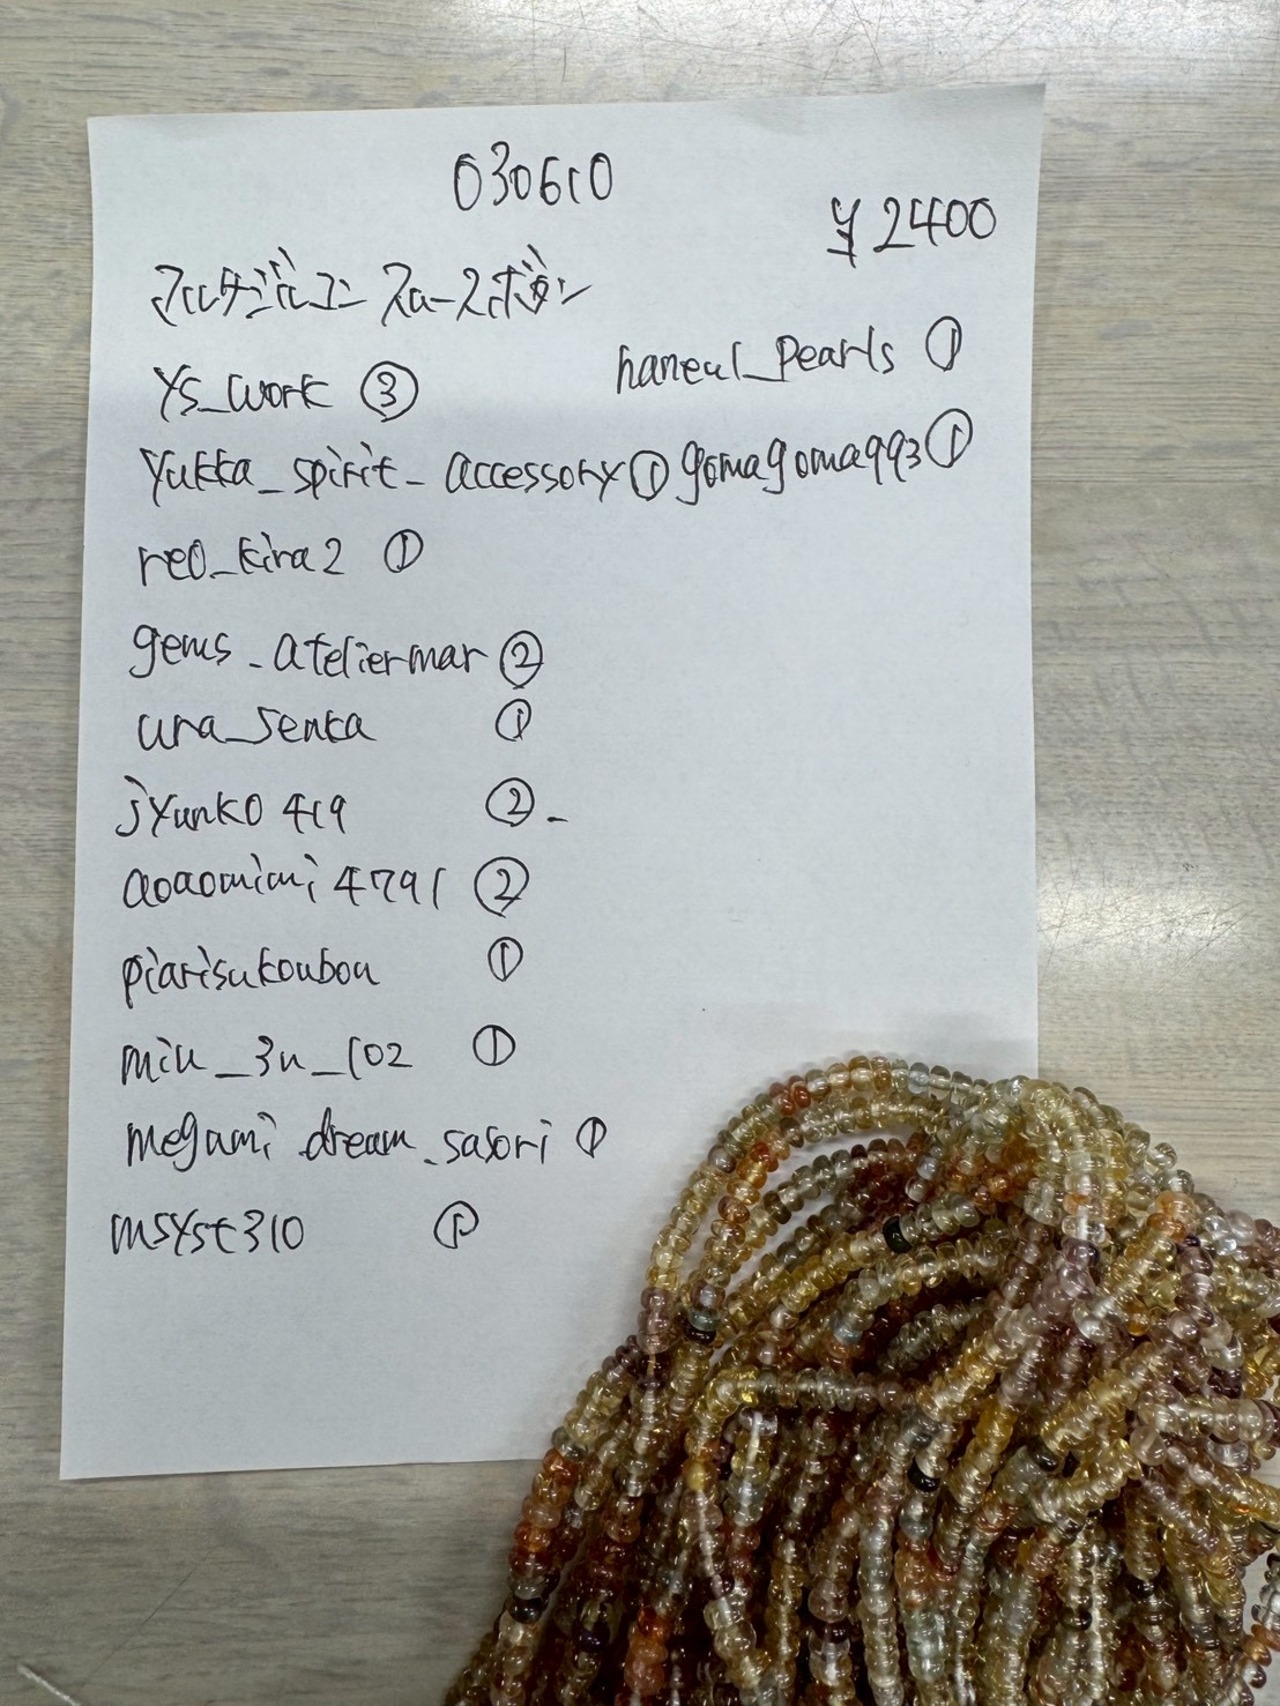 030610
¥2400
マルチジルコン スムースボタン
ys_work ③
haneul_pearls ①
yukka_spirit_accessory ① gomagoma993 ①
reo_kira2 ①
gems_ateliermar ②
ura_senka ①
jyunko419 ②-
aoaomimi4791 ②
piarisukoubou ①
miu_3u_102 ①
megami.dream_sasori ①
msyst310 ①